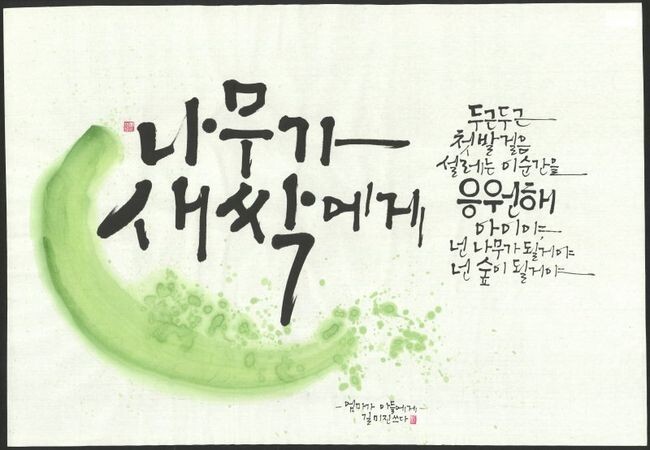 나무가
새싹에게
두근두근
첫발걸음
설레는 이순간을
응원해
아이야,
넌 나무가 될게야
넌 숲이 될게야
엄마가 아들에게
길미진쓰다